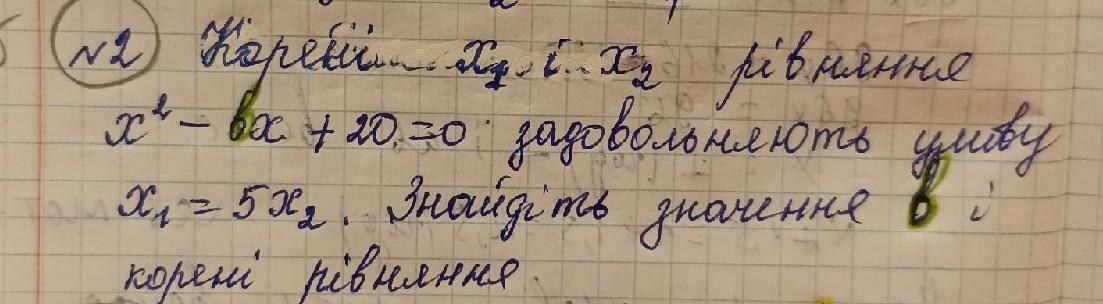 №2 Корені x₁ і x₂ рівняння
x² - bx + 20 = 0 задовольняють умову
x₁ = 5x₂. Знайдіть значення b і
корені рівняння